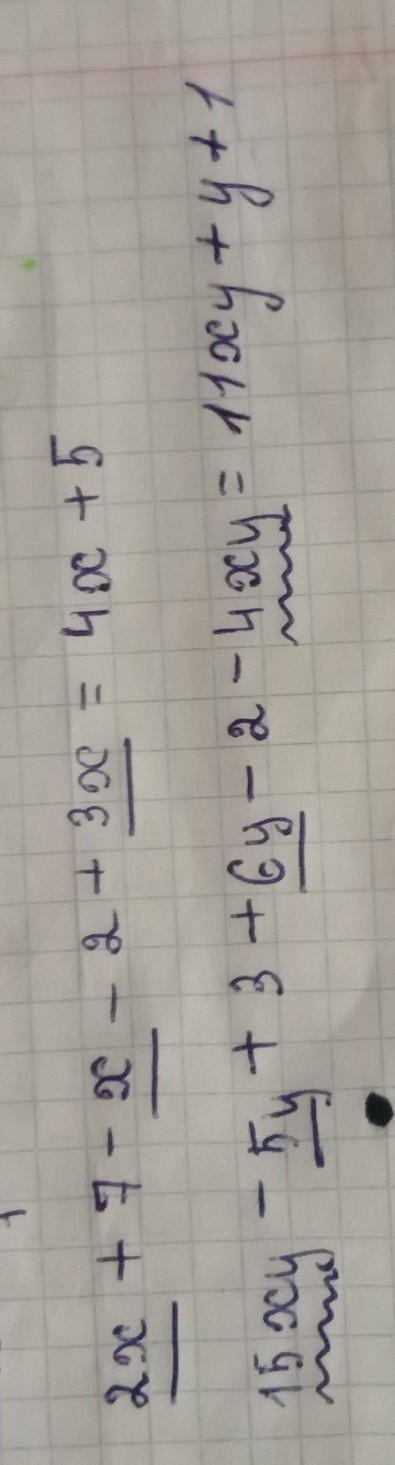 2x + 7 - x - 2 + 3x = 4x + 5
15xy - 5y + 3 + 6y - 2 - 4xy = 11xy + y + 1